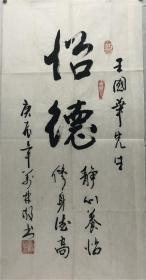 王國華先生
怡德
静心養怡
修身德高
庚寅年
书